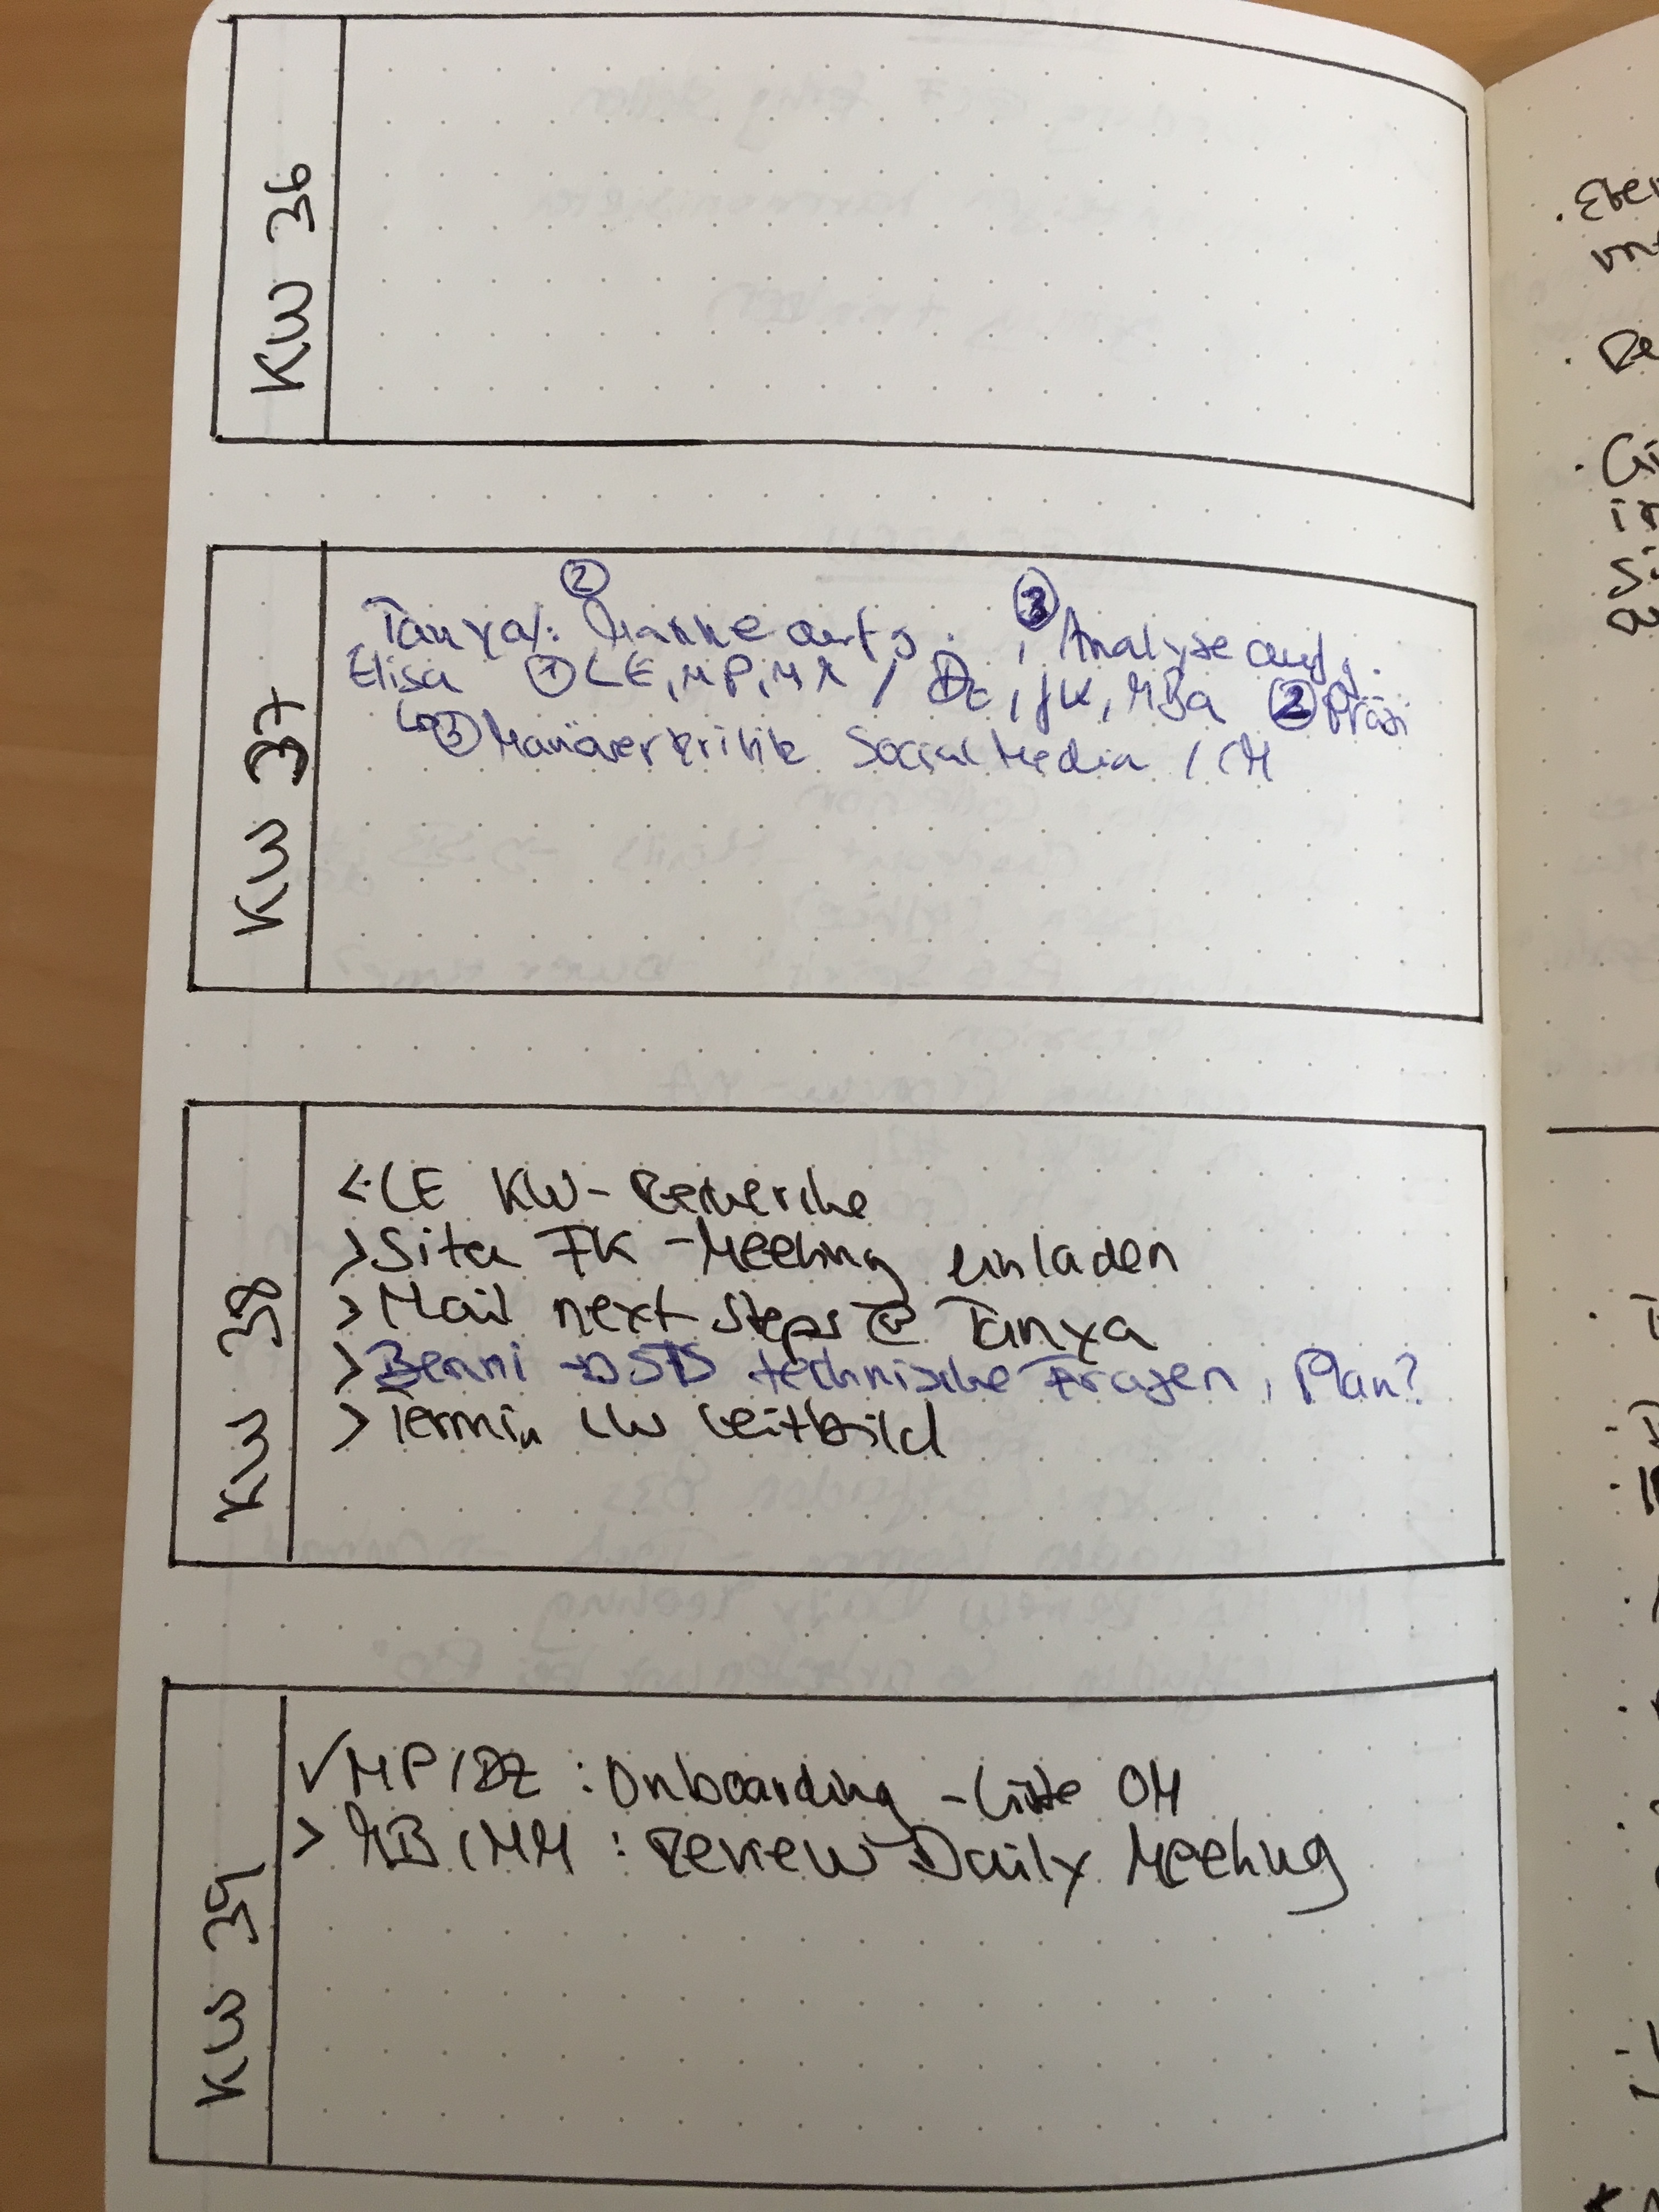 KW 36
KW 37
②
③
Tanya/: Marke aufg. , Analyse aufg.
Elisa ① LE, MP, MR / DZ, JK, MBa ② Präsi
↳ ③ Manöverkritik Social Media / CM
KW 38
< LE KW-Recherche
> Sita FK-Meeting einladen
> Mail next Steps @ Tanya
> Benni → STS technische Fragen, Plan?
> Termin LW Leitbild
KW 39
✓ MP/DZ : Onboarding-Liste OM
> MB/MM : Review Daily Meeting